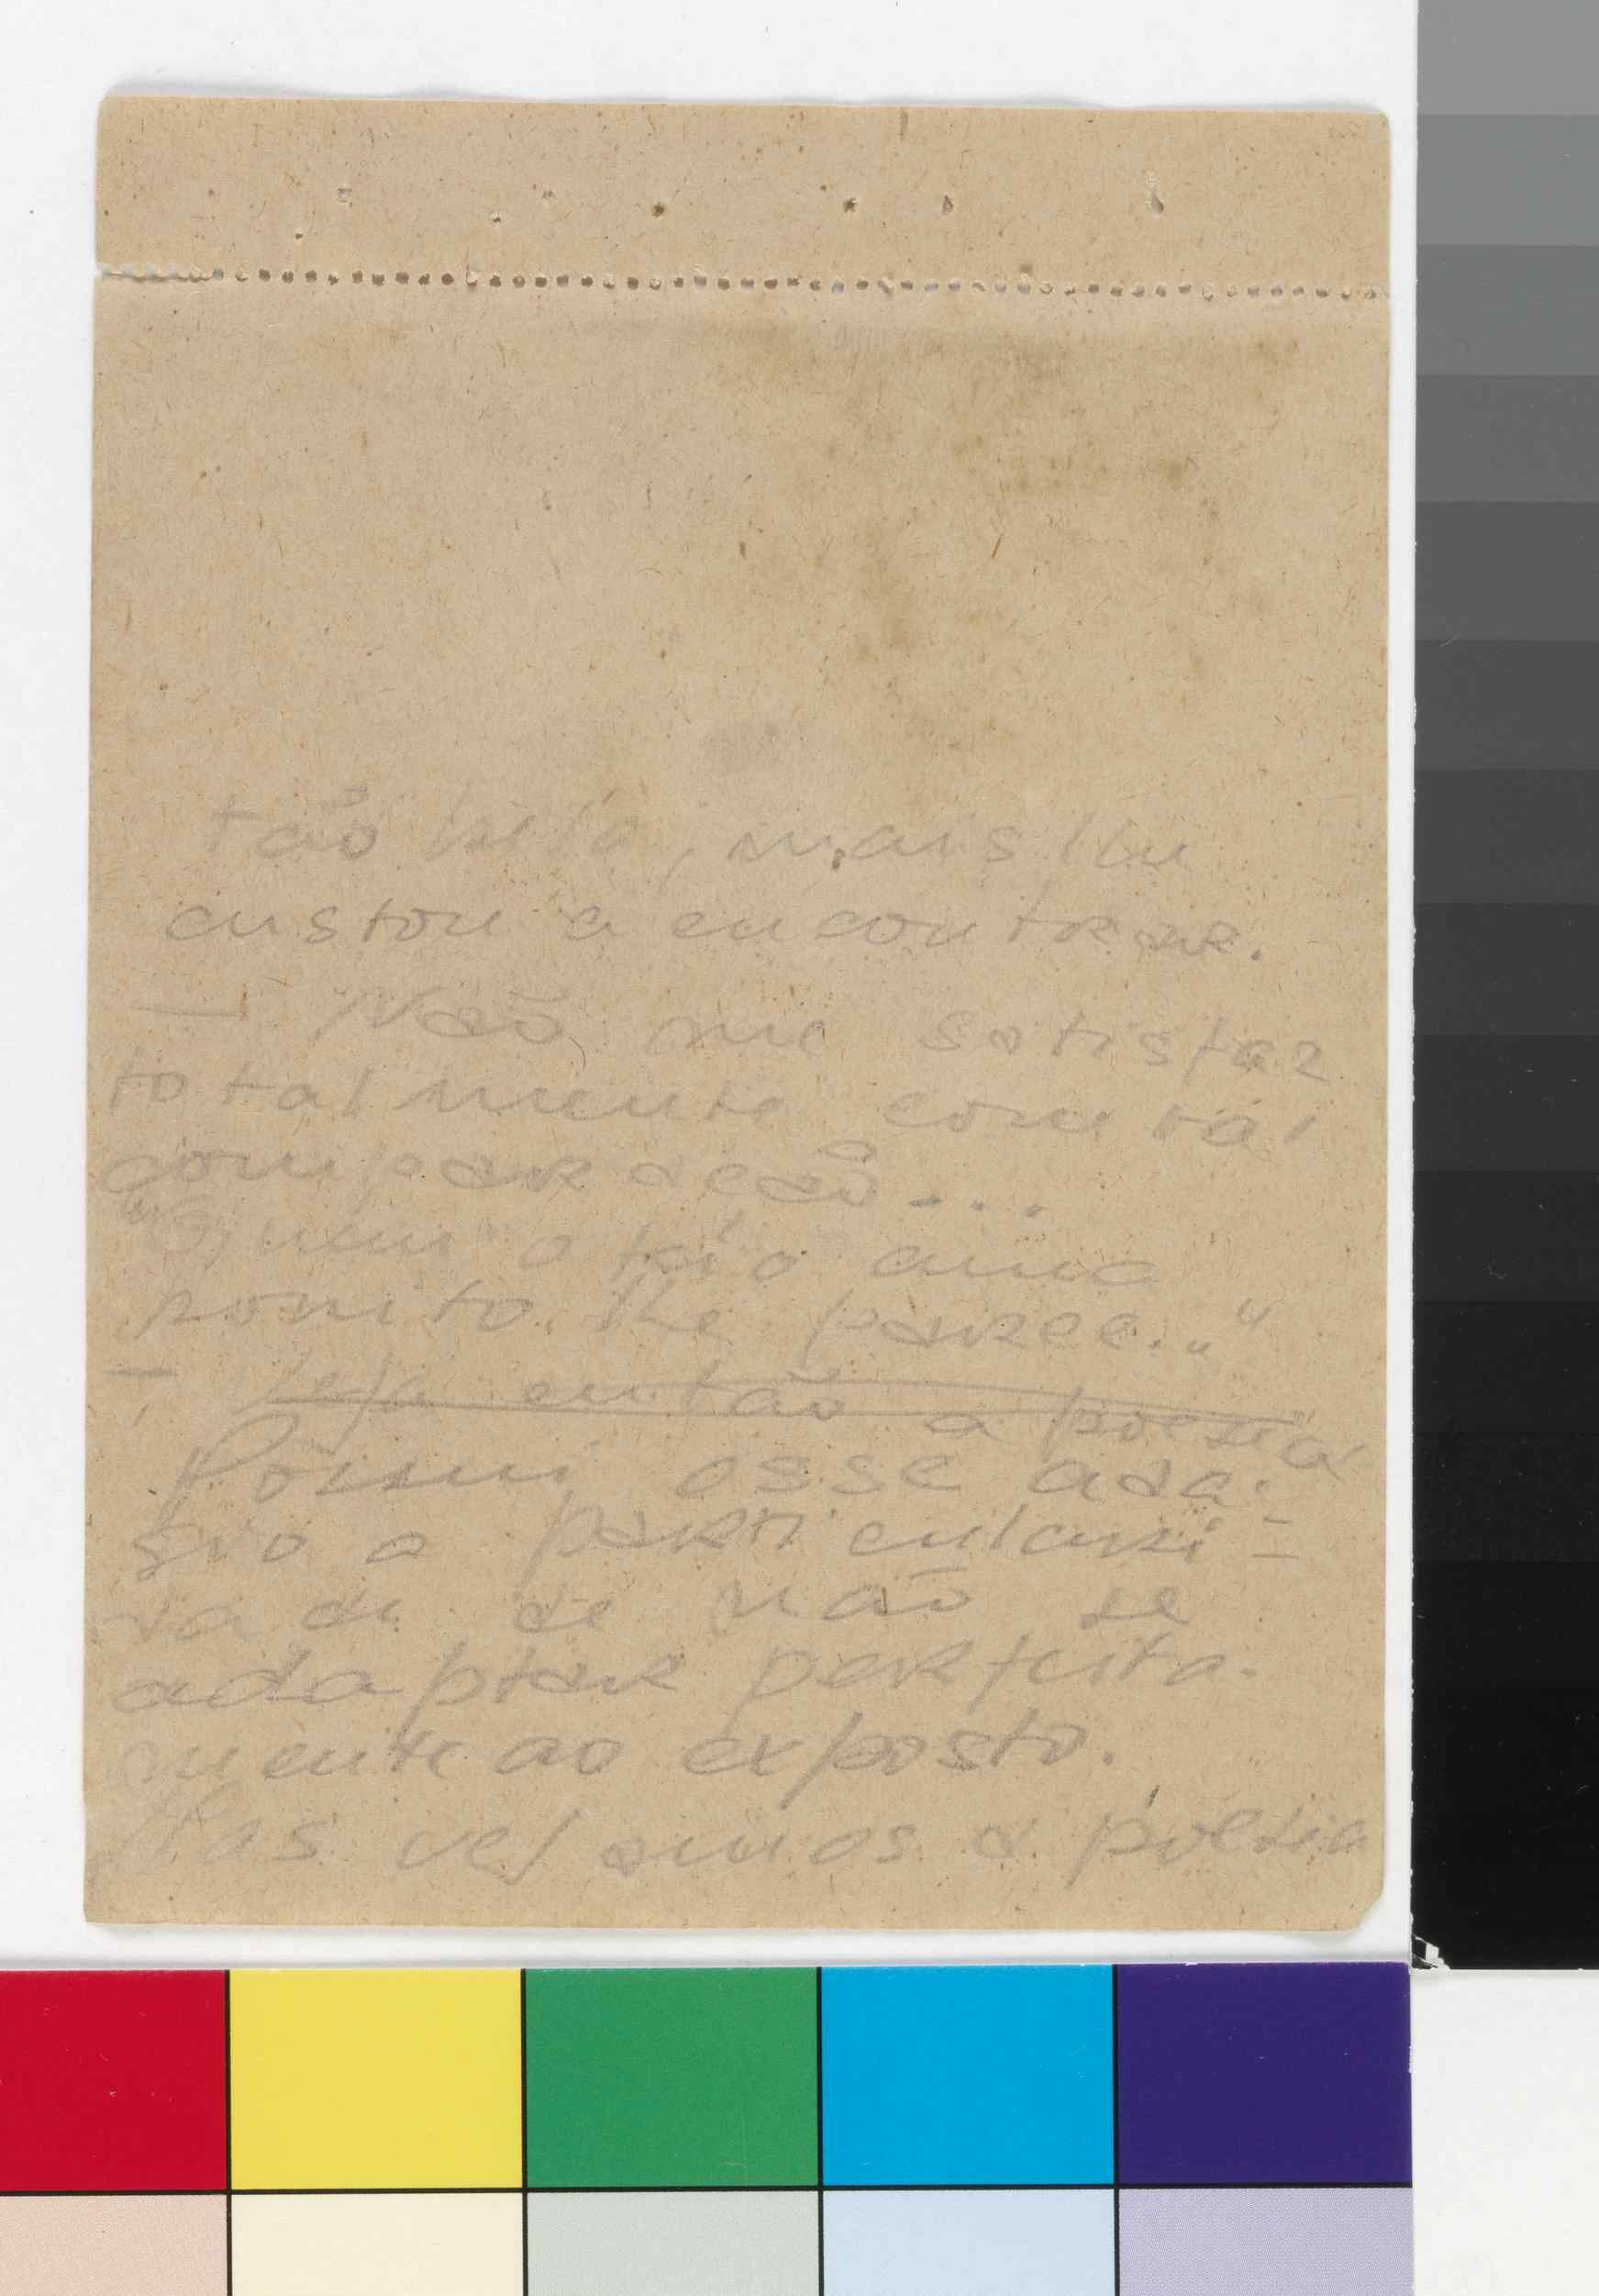 tão bella, mais lhe
custou a encontrar.
— Não me satisfaz
totalmente com tal
comparacão...
"Quem o feio ama
bonito lhe parece..."
— Leja então a poesia
Possui esse ada-
gio a particulari=
dade de não se
adaptar perfeita-
mente ao exposto.
Mas vejamos a poesia